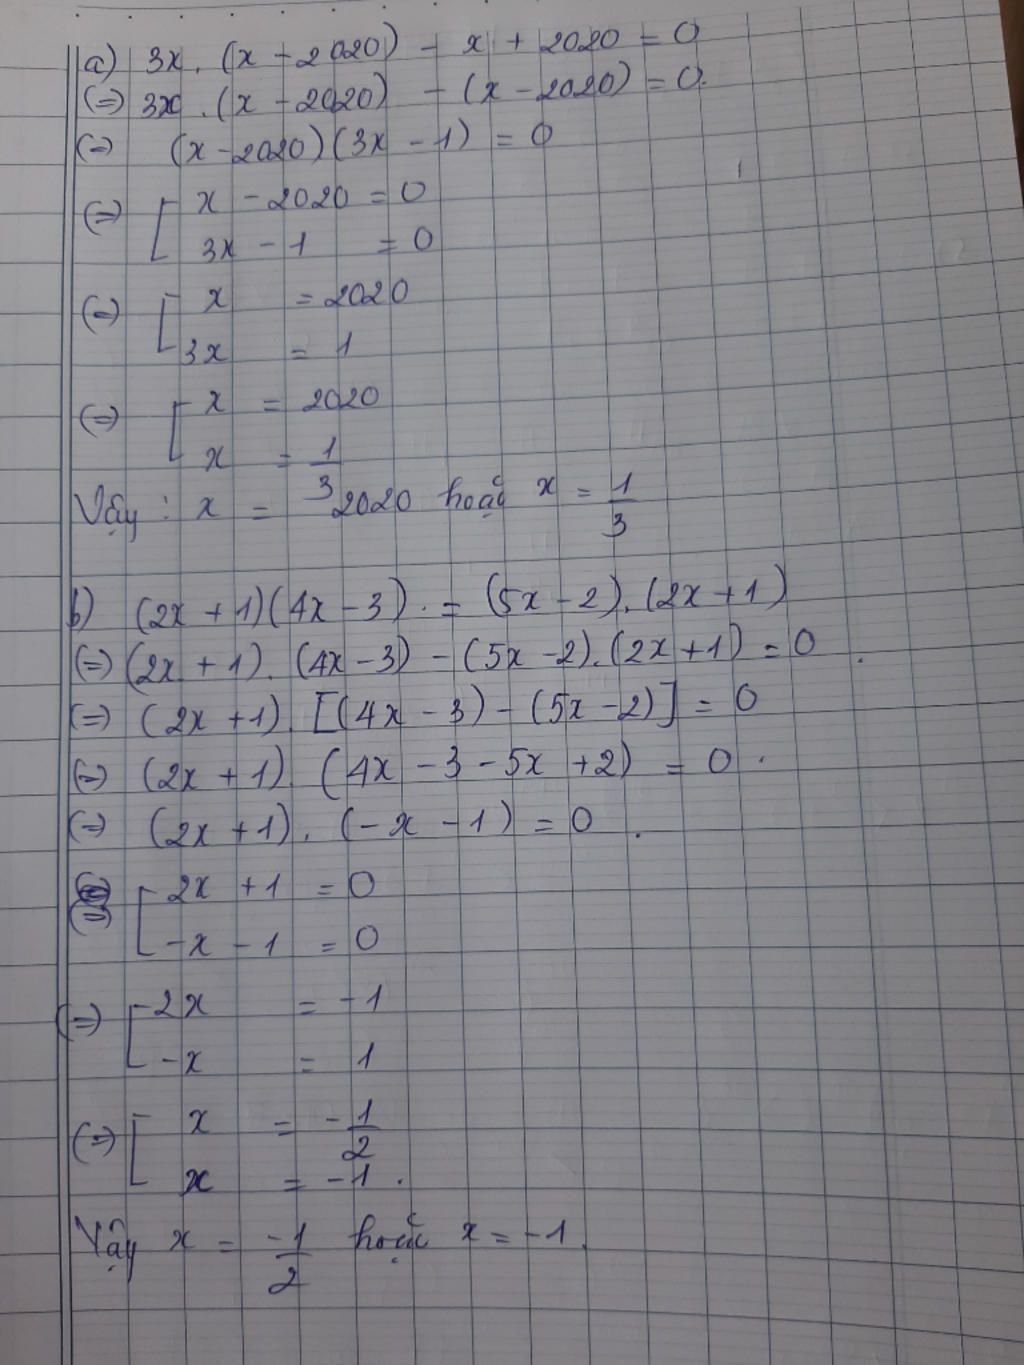 a) 3x. (x - 2020) - x + 2020 = 0
(=) 3x .(x - 2020) - (x - 2020) = 0.
(=) (x - 2020)(3x - 1) = 0
(=) [ x - 2020 = 0
3x - 1 = 0
(=) [ x = 2020
3x = 1
(=) [ x = 2020
x = 1/3
Vậy : x = 2020 hoặc x = 1/3
b) (2x + 1)(4x - 3). = (5x - 2).(2x + 1)
(=) (2x + 1). (4x - 3) - (5x - 2).(2x + 1) = 0.
(=) (2x + 1). [(4x - 3) - (5x - 2)] = 0
(=) (2x + 1). (4x - 3 - 5x + 2) = 0.
(=) (2x + 1). (-x - 1) = 0.
(=) [ 2x + 1 = 0
-x - 1 = 0
(=) [ 2x = -1
-x = 1
(=) [ x = -1/2
x = -1.
Vậy x = -1/2 hoặc x = -1.